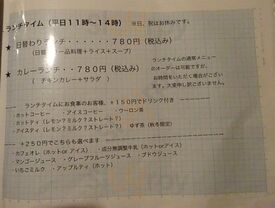 ランチタイム（平日１１時～１４時） ※日、祝はお休みです。
★ 日替わりランチ・・・・・・７８０円（税込み）
（日替わり一品料理＋ライス＋スープ）
★ カレーランチ・・７８０円（税込み）
（チキンカレー＋サラダ）
ランチタイムの通常メニュー
のオーダーは可能ですが、
お時間をいただく場合がござい
ます。大変申し訳ございません。
ランチタイムにお食事のお客様、＋１５０円でドリンク付き
・ホットコーヒー ・アイスコーヒー ・ウーロン茶
・ホットティ（レモン？ミルク？ストレート？）
・アイスティ（レモン？ミルク？ストレート？） ゆず茶（秋冬限定）
＋２５０円でこちらも選べます
・カフェオレ（ホットor アイス） ・成分無調整牛乳（ホットor アイス）
・マンゴージュース ・グレープフルーツジュース ・ブドウジュース
・いちごミルク ・アップルティ（ホット）